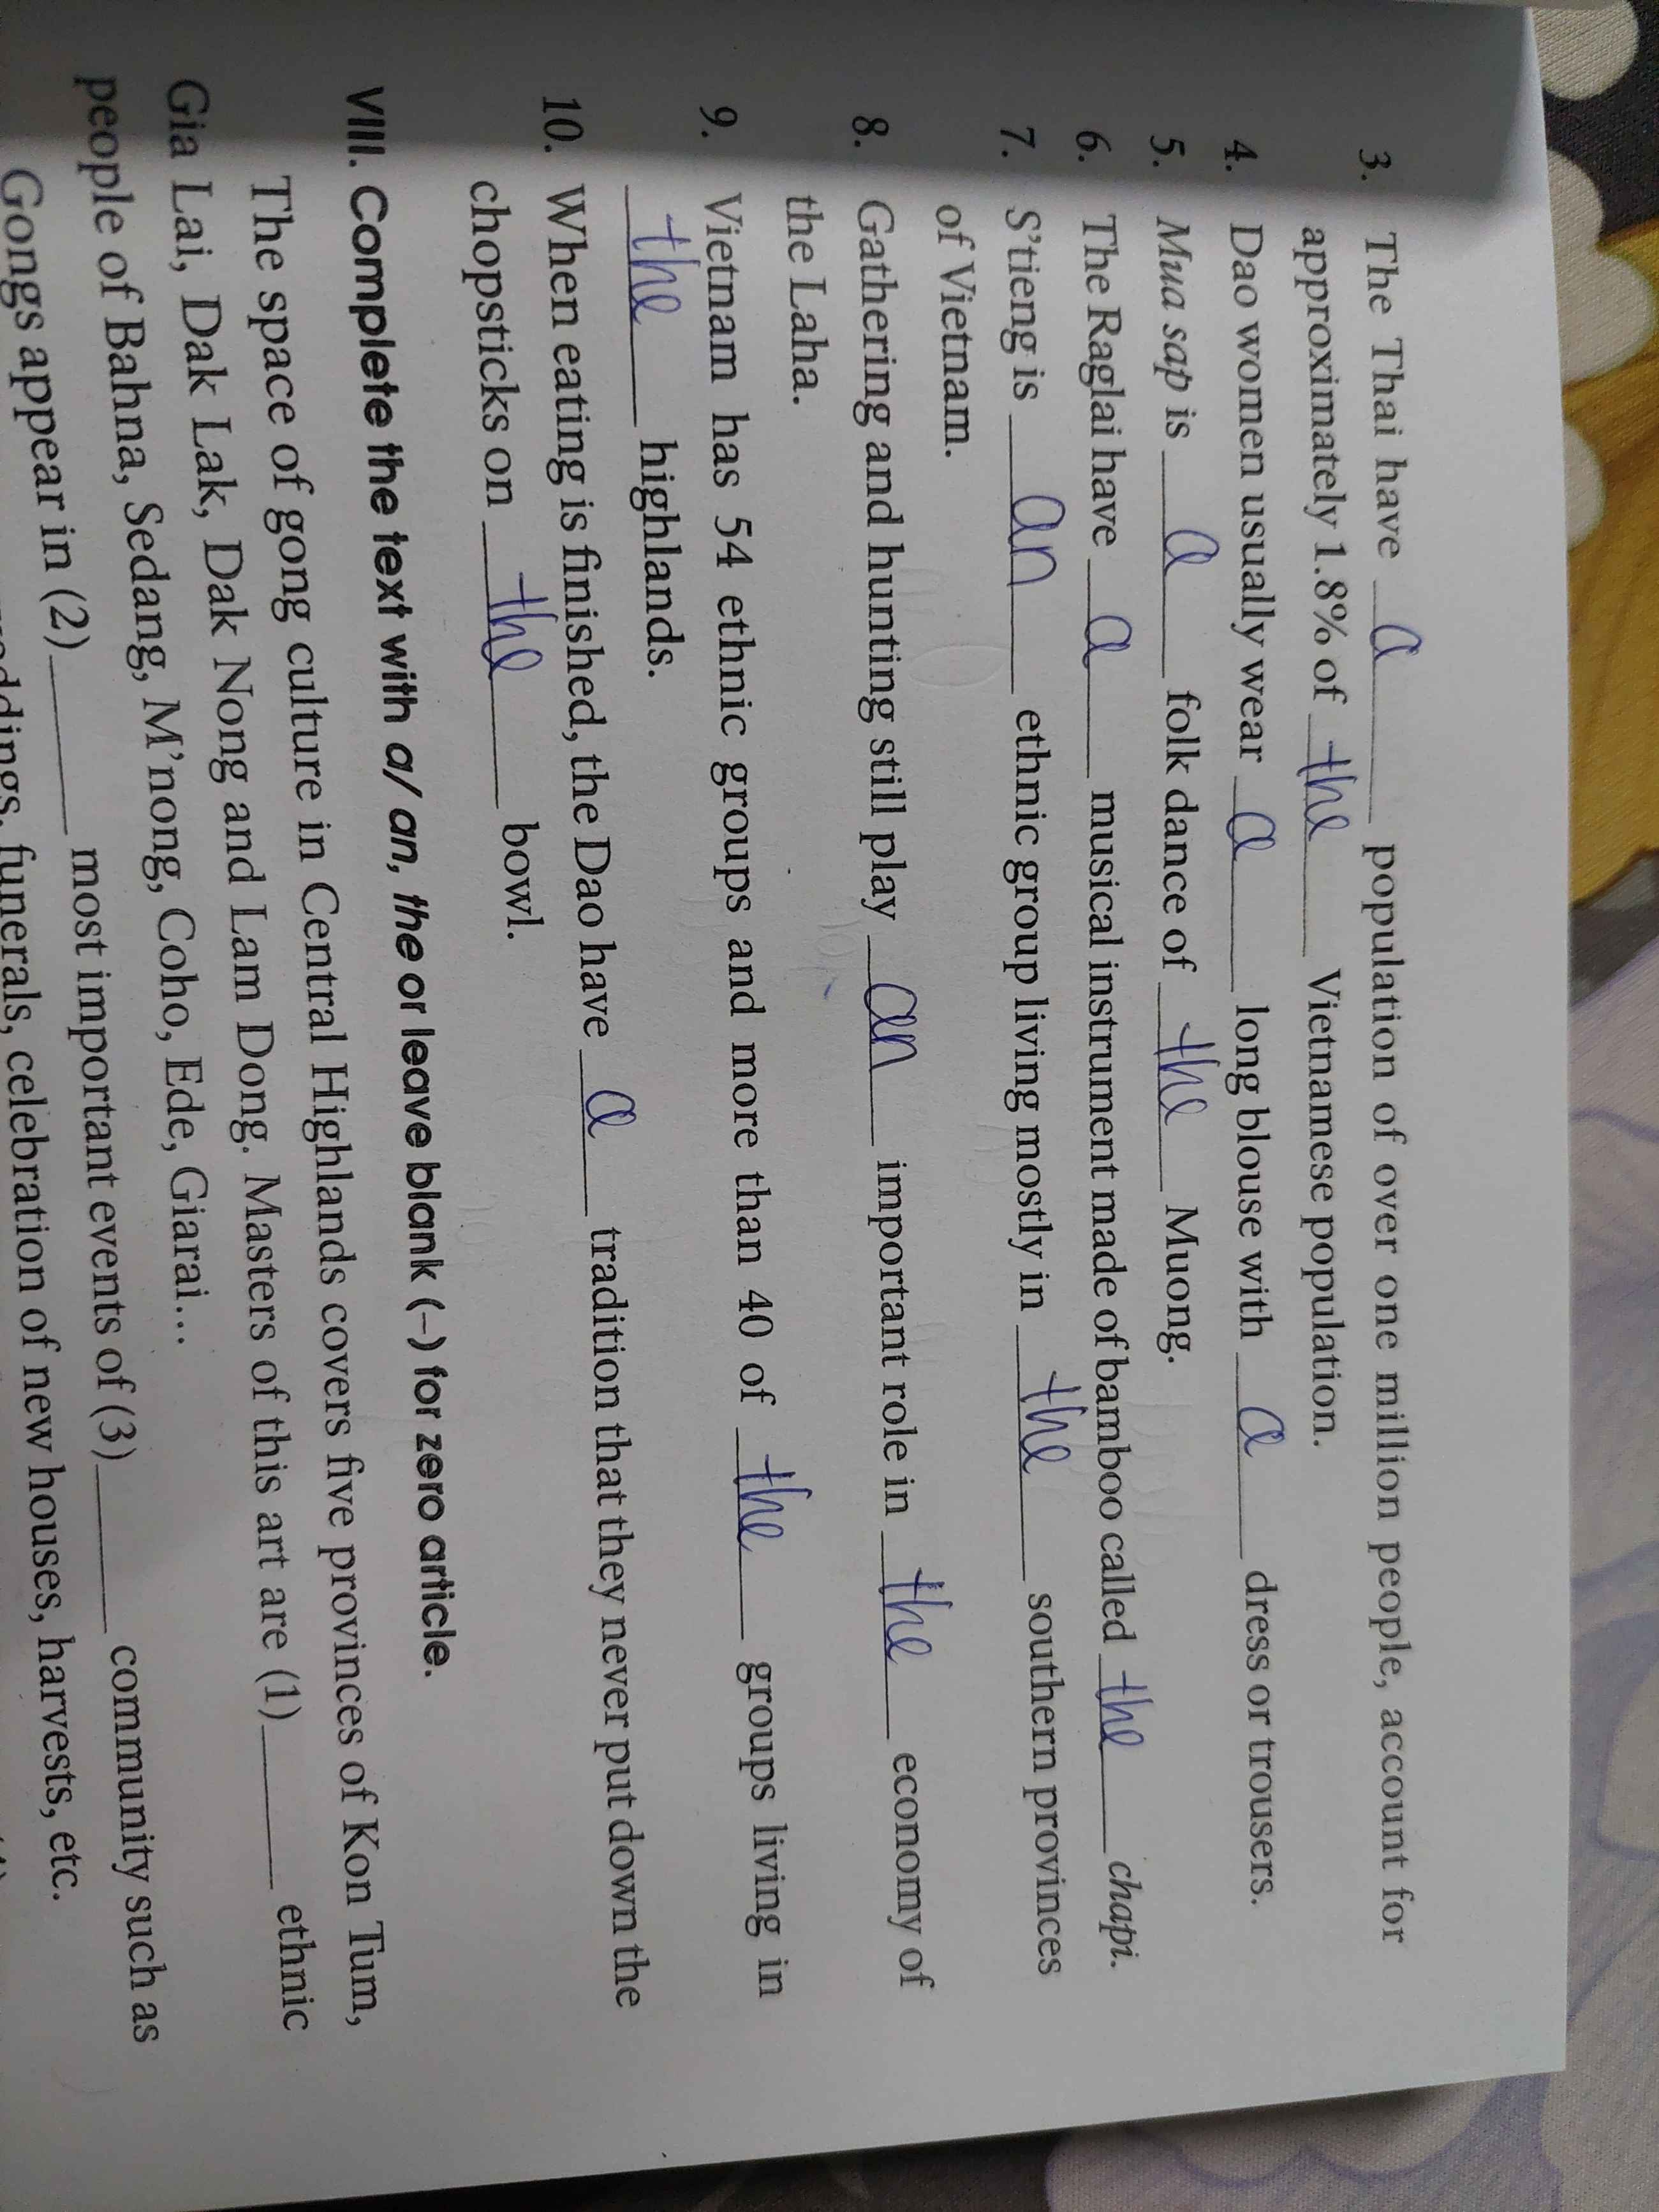 3. The Thai have a population of over one million people, account for
approximately 1.8% of the Vietnamese population.
4. Dao women usually wear a long blouse with a dress or trousers.
5. Mua sap is a folk dance of the Muong.
6. The Raglai have a musical instrument made of bamboo called the chapi.
7. S'tieng is an ethnic group living mostly in the southern provinces
of Vietnam.
8. Gathering and hunting still play an important role in the economy of
the Laha.
9. Vietnam has 54 ethnic groups and more than 40 of the groups living in
the highlands.
10. When eating is finished, the Dao have a tradition that they never put down the
chopsticks on the bowl.
VIII. Complete the text with a/ an, the or leave blank (–) for zero article.
The space of gong culture in Central Highlands covers five provinces of Kon Tum,
Gia Lai, Dak Lak, Dak Nong and Lam Dong. Masters of this art are (1)______ ethnic
people of Bahna, Sedang, M'nong, Coho, Ede, Giarai...
Gongs appear in (2)______ most important events of (3)______ community such as
funerals, celebration of new houses, harvests, etc.